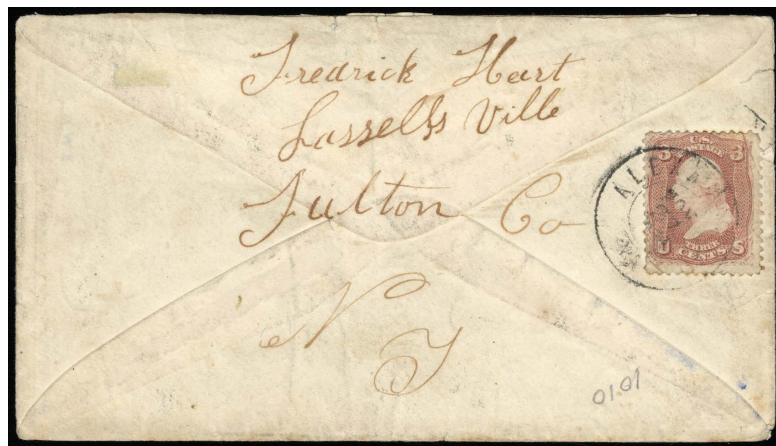 Fredrick Hart
Lassells Ville
Fulton Co
N Y
U.S. POSTAGE
3 3
U S
THREE CENTS
0101